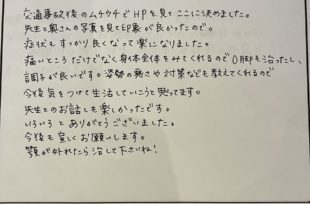 交通事故後のムチウチでHPを見てここに決めました。
先生と奥さんの写真を見て印象が良かったので。
症状もすっかり良くなって楽になりました。
痛いところだけでなく身体全体をみてくれるのでO脚も治ったし、
調子が良いです。姿勢の悪さや対策なども教えてくれるので
今後気をつけて生活していこうと思ってます。
先生とのお話しも楽しかったです。
いろいろとありがとうございました。
今後も宜しくお願いします。
顎が外れたら治して下さいね!